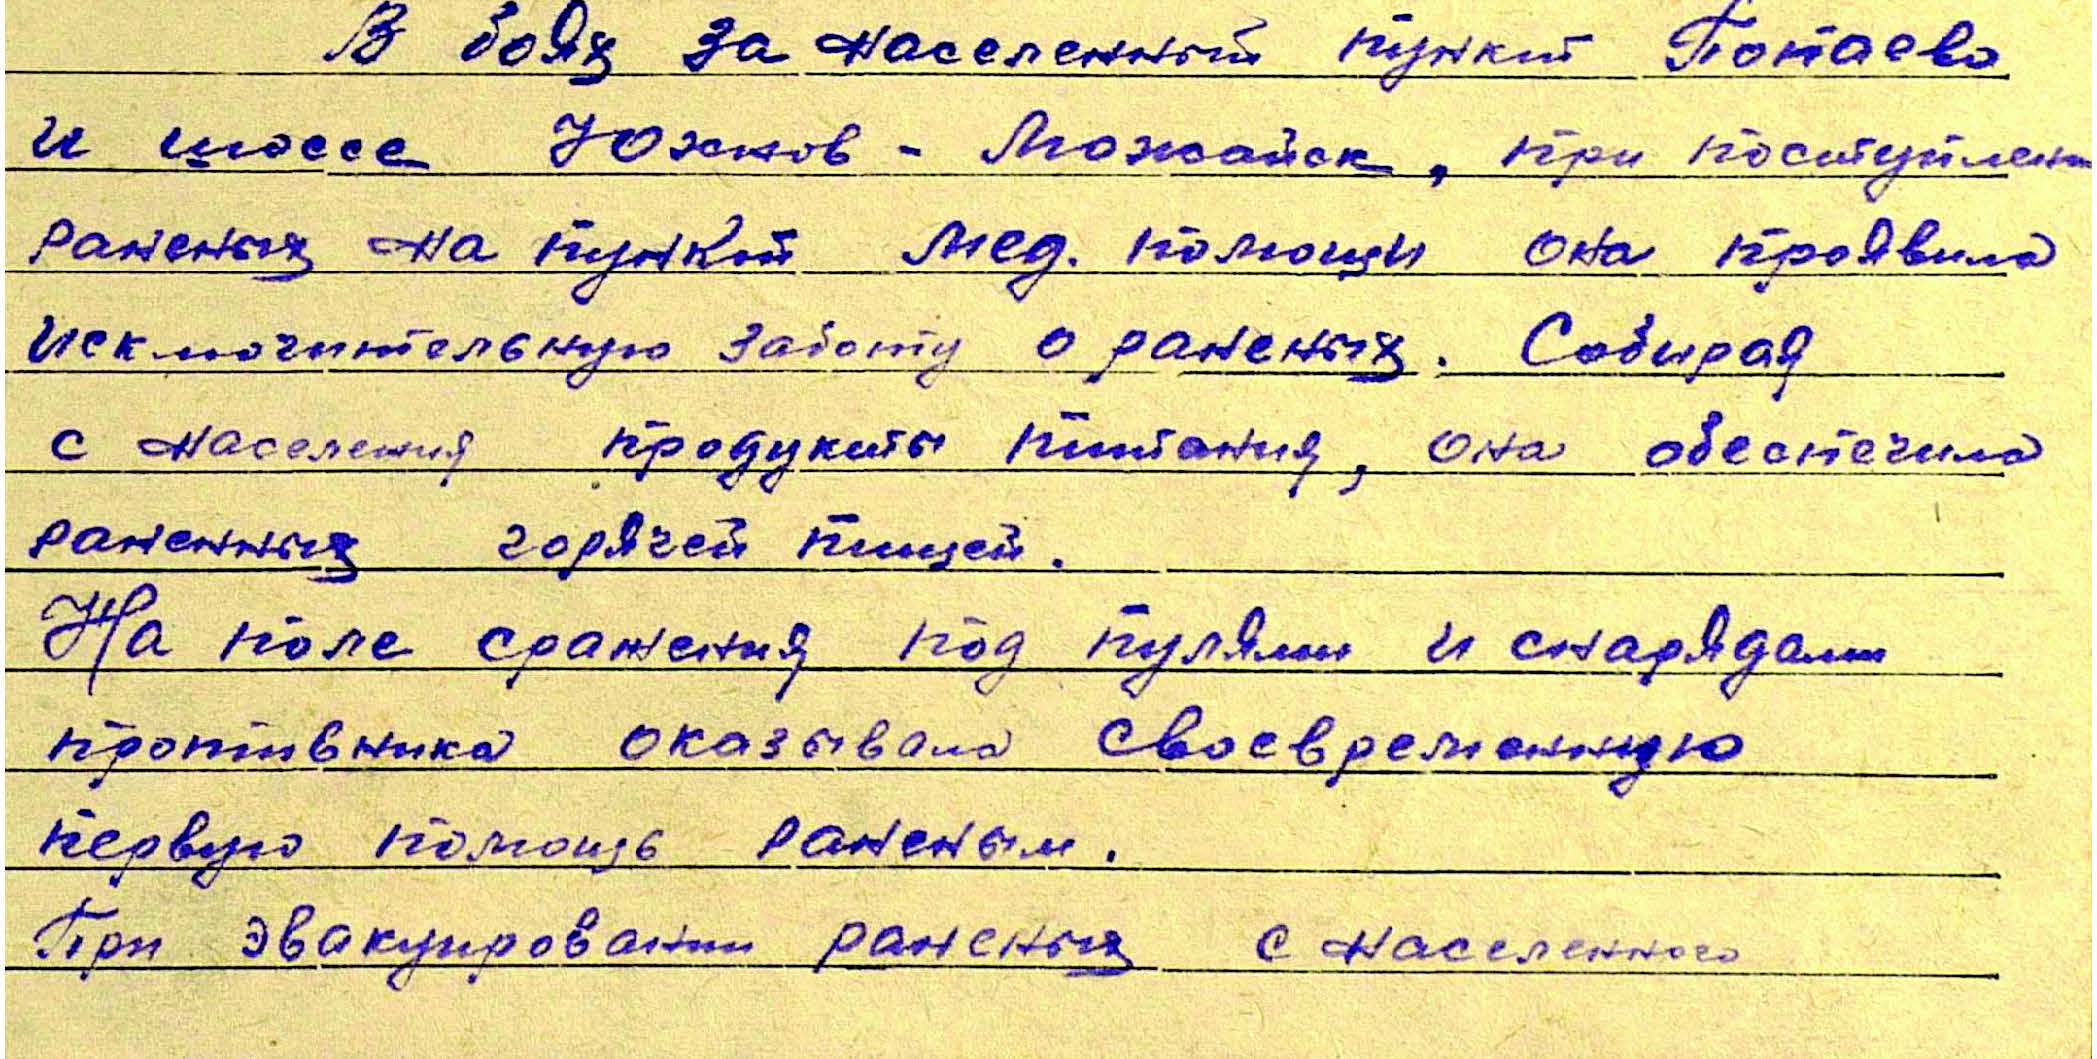 В боях за населенный пункт Попаево
и шоссе Юхнов - Можайск, при поступлени
раненых на пункт мед. помощи она проявила
исключительную заботу о раненых. Собирая
с населения продукты питания, она обеспечила
раненных горячей пищей.
На поле сражения под пулями и снарядами
противника оказывала своевременную
первую помощь раненым.
При эвакуировании раненых с населенного